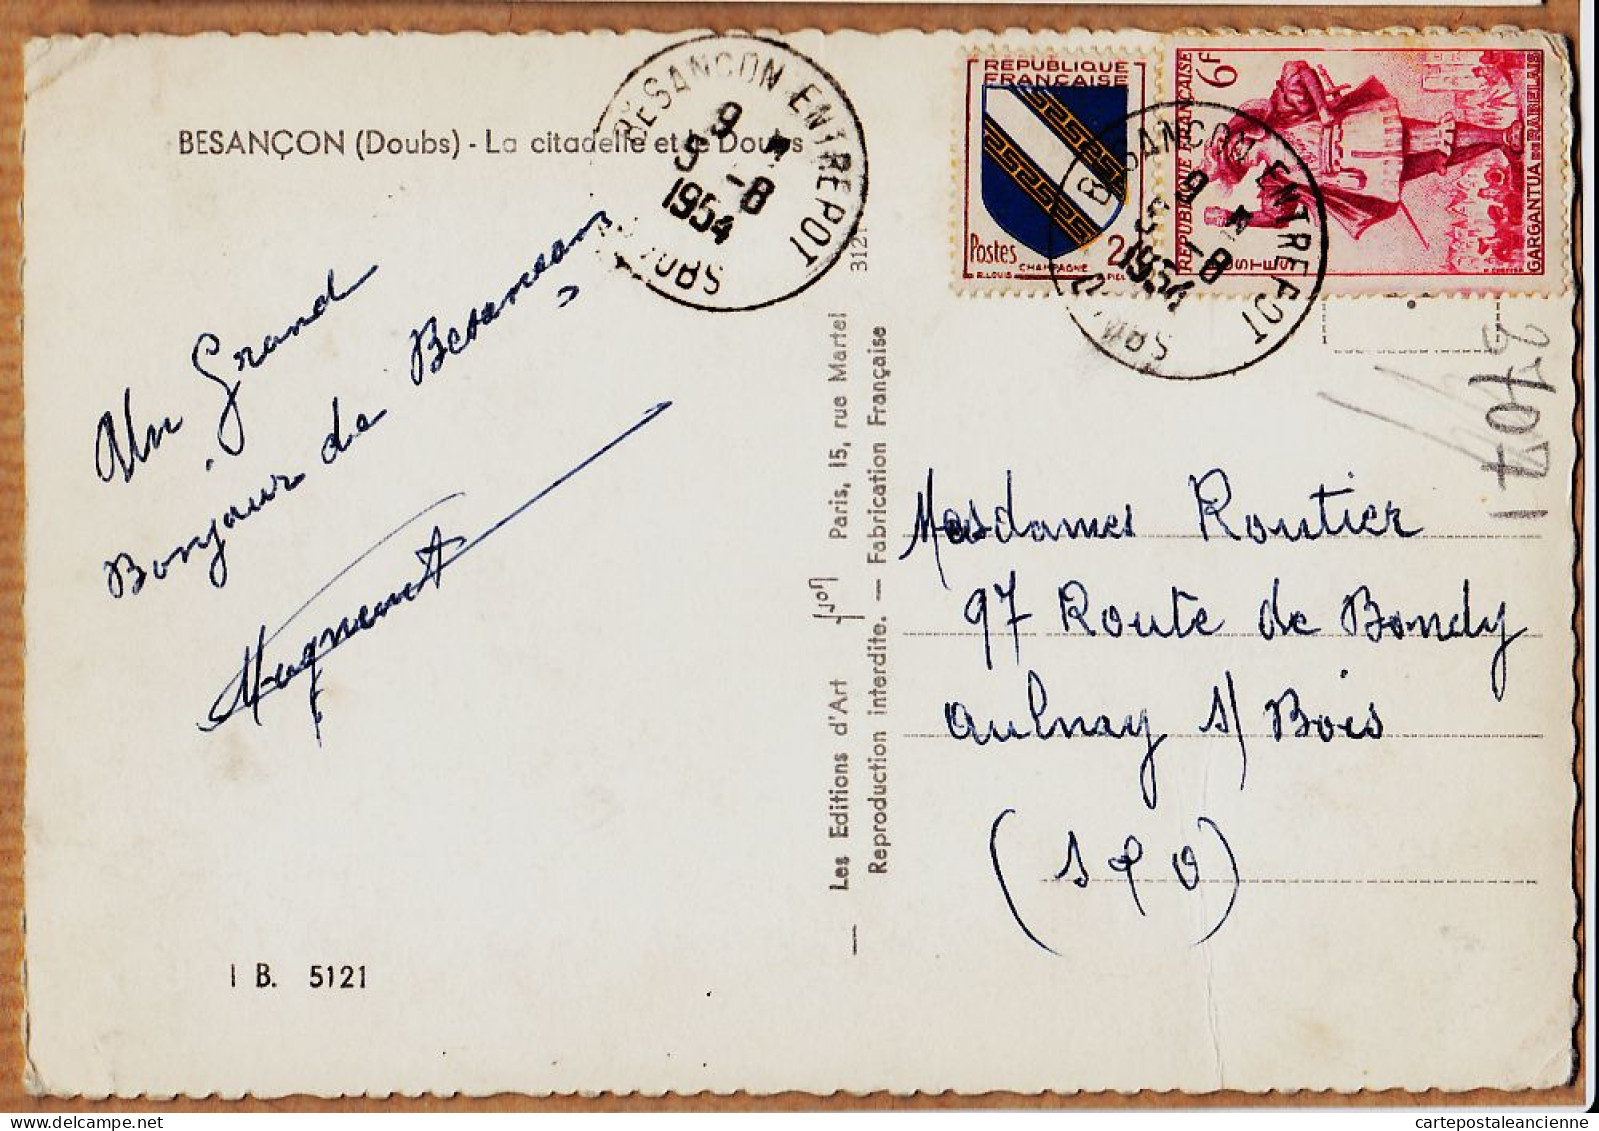 BESANÇON (Doubs) - La citadelle et le Doubs
BESANÇON ENTREPOT
9
5 - 8
1954
DOUBS
RÉPUBLIQUE
FRANÇAISE
Postes
2
R. LOUIS
CHAMPAGNE
PIEL
RÉPUBLIQUE FRANÇAISE
6F
POSTES
GARGANTUA DE RABELAIS
BESANÇON ENTREPOT
9
1954
- 8
DOUBS
Un Grand
Bonjour de Besançon
Huguenot
Les Editions d'Art Yvon Paris, 15, rue Martel
Reproduction interdite. — Fabrication Française
Mesdames Routier
97 Route de Bondy
Aulnay s/ Bois
(S & O)
I B. 5121
cartepostaleancienne